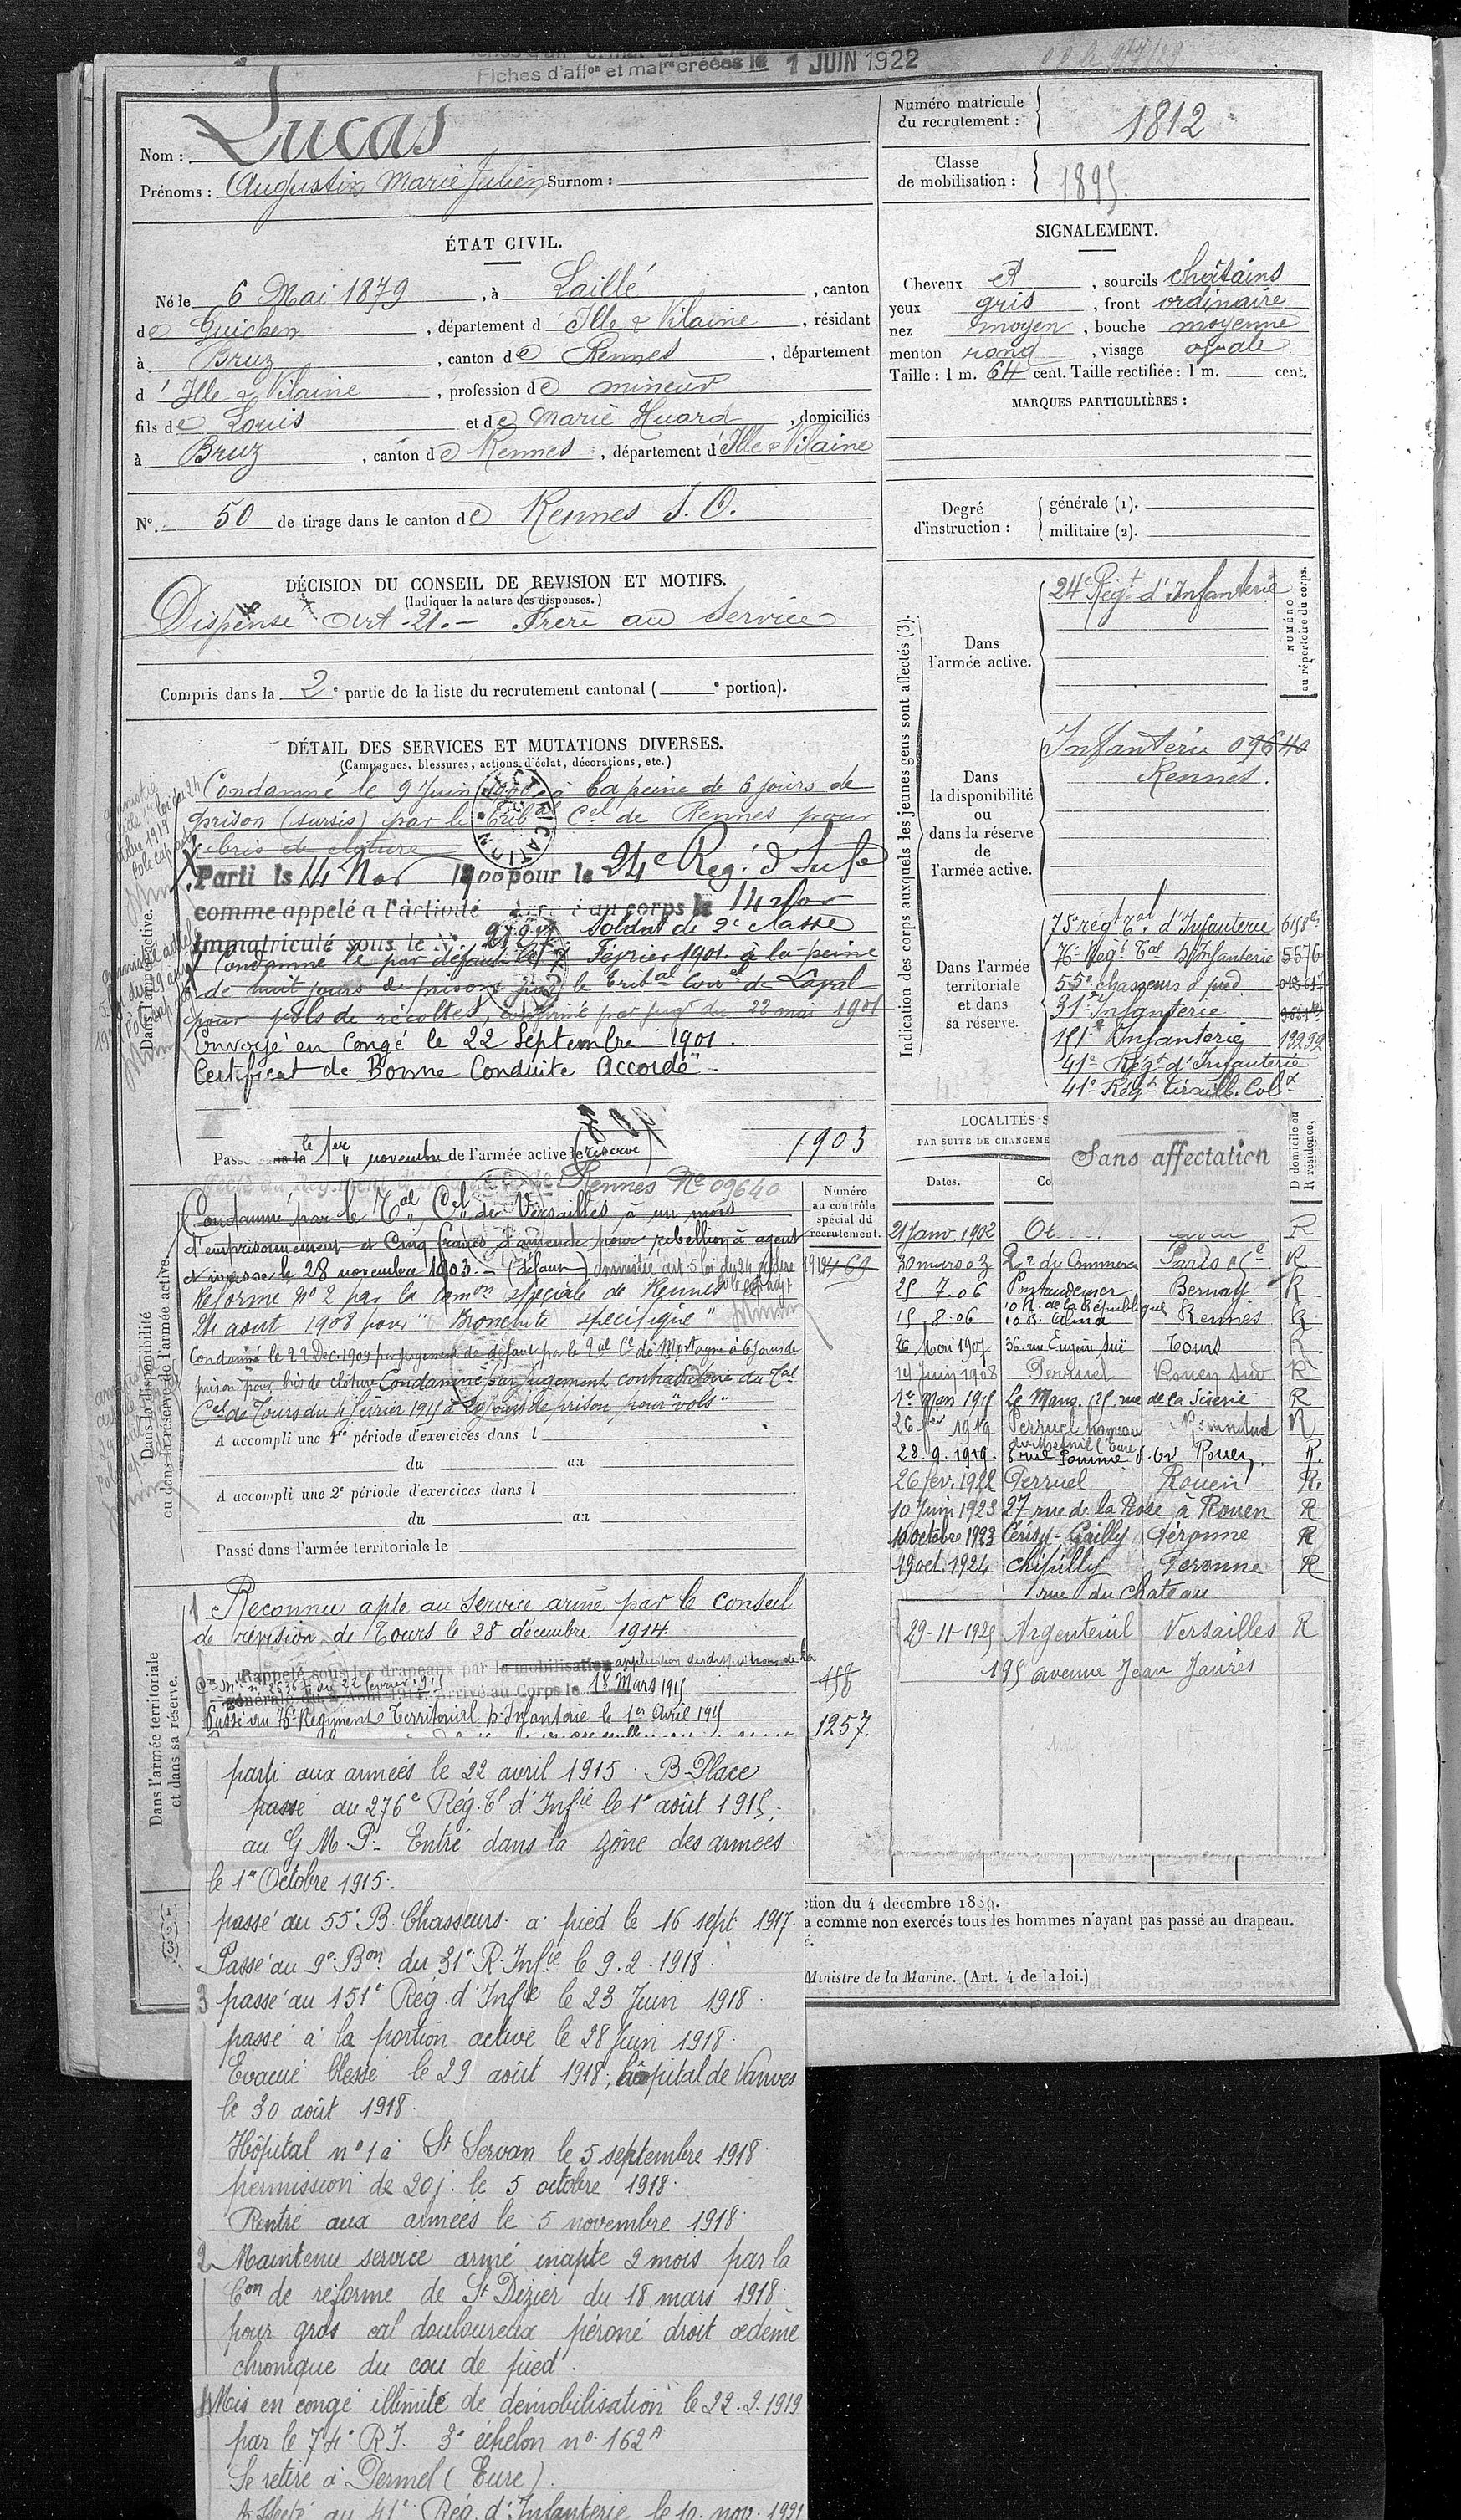 Fiches d'affon et matres créées le 1 JUIN 1922
Nom : Lucas
Prénoms : Augustin Marie Julien Surnom :
Numéro matricule du recrutement : 1812
Classe de mobilisation : 1895
ÉTAT CIVIL.
Né le 6 Mai 1879, à Laillé, canton
de Guichen, département d Ille & Vilaine, résidant
à Bruz, canton de Rennes, département
d' Ille & Vilaine, profession de mineur
fils de Louis et de Marie Huard, domiciliés
à Bruz, canton de Rennes, département d'Ille & Vilaine
N°. 50 de tirage dans le canton de Rennes S. O.
SIGNALEMENT.
Cheveux et, sourcils châtains
yeux gris, front ordinaire
nez moyen, bouche moyenne
menton rond, visage ovale
Taille : 1 m. 64 cent. Taille rectifiée : 1 m. cent.
MARQUES PARTICULIÈRES :
Degré d'instruction : générale (1).
militaire (2).
DÉCISION DU CONSEIL DE REVISION ET MOTIFS.
(Indiquer la nature des dispenses.)
Dispensé Art. 21. — Frère au Service
Compris dans la 2e partie de la liste du recrutement cantonal ( e portion).
DÉTAIL DES SERVICES ET MUTATIONS DIVERSES.
(Campagnes, blessures, actions d'éclat, décorations, etc.)
Condamné le 9 Juin 1900 à la peine de 6 jours de
prison (sursis) par le Tribal Cel de Rennes pour
bris de cloture
Parti le 14 Nov 1900 pour le 24e Reg. d'Infie
comme appelé a l'activité au corps le 14 Nov
Immatriculé sous le N° 2127 Soldat de 2e classe
Condamné le par défaut le 7 Février 1901 à la peine
de huit jours de prison par le tribal Corel de Laval
pour vols de récoltes, confirmé par jugt du 22 mai 1901
Envoyé en Congé le 22 Septembre 1901.
Certificat de "Bonne Conduite Accordé".
Passé dans la le 1er novembre de l'armée active (réserve) 1903
Rennes No 09640
Condamné par le Tal Cel de Versailles à un mois
d'emprisonnement et Cinq francs d'amende pour rébellion à agent
et ivresse le 28 novembre 1903 — (défaut) amnistié art 5 loi du 24 octobre 1919
Réformé No 2 par la Comon spéciale de Rennes
24 aout 1908 pour "Bronchite spécifique"
Condamné le 22 Déc. 1909 par jugement de défaut par le Tal Cel de Mortagne à 6 jours de
prison pour bris de cloture Condamné par jugement contradictoire du Tal
Cel de Tours du 4 février 1915 à 20 jours de prison pour "vols"
A accompli une 1re période d'exercices dans l
du au
A accompli une 2e période d'exercices dans l
du au
Passé dans l'armée territoriale le
Numéro au contrôle spécial du recrutement.
469
Dans l'armée active.
Dans la disponibilité ou dans la réserve de l'armée active.
Dans l'armée territoriale et dans sa réserve.
1 Reconnu apte au Service armé par le Conseil
de révision de Tours le 28 décembre 1914.
Rappelé sous les drapeaux par la mobilisation application des dispositions de la
générale du arrivé au Corps le 18 Mars 1915
Passé au 76e Régiment Territorial d'Infanterie le 1er Avril 1915
158
1257.
parti aux armées le 22 avril 1915. B-Place
passé au 276e Rég. Tl d'Infie le 1er août 1915.
au G M. P. Entré dans la zône des armées
le 1er Octobre 1915.
passé au 55e B. Chasseurs à pied le 16 sept 1917.
Passé au 9e Bon du 31e R. Infie le 9.2.1918.
3 passé au 151e Rég d'Infie le 23 Juin 1918
passé à la portion active le 28 Juin 1918.
Evacué blessé le 29 août 1918, hôpital de Vanves
le 30 août 1918.
Hôpital no 1 à St Servan le 5 septembre 1918
permission de 20 j. le 5 octobre 1918.
Rentré aux armées le 5 novembre 1918.
2 Maintenu service armé inapte 2 mois par la
Con de réforme de St Dizier du 18 mars 1918
pour gros cal douloureux péroné droit œdème
chronique du cou de pied.
4 Mis en congé illimité de démobilisation le 22.2.1919
par le 74e R I. 3e échelon no 162 A
Se retire à Permel (Eure)
Affecté au 41e Rég. d'Infanterie le 10 nov. 1921
Indication des corps auxquels les jeunes gens sont affectés (3).
NUMÉRO au répertoire du corps.
Dans l'armée active.
24e Régt d'Infanterie
Dans la disponibilité ou dans la réserve de l'armée active.
Infanterie 09640
Rennes.
Dans l'armée territoriale et dans sa réserve.
75e régt Tal d'Infanterie 6158
76e Régt Tal d'Infanterie 5576
55e chasseurs à pied
31e Infanterie
151e Infanterie 13292
41e Régt d'Infanterie
41e Régt tiraill. Colx
LOCALITÉS S
PAR SUITE DE CHANGEME
Sans affectation
D domicile ou R résidence,
Dates. Co
21 Janv. 1902 R
30 mars 03 2 r du Commerce Paris 15e R
25.7.06 Pontaudemer Bernay R
15.8.06 10 R. de la République Rennes R
26 Mai 1907 36. rue Eugène Suë Tours R
14 Juin 1908 Perruel Rouen Sud R
1er Mars 1915 Le Mans, 125, rue de la Scierie R
26 fév 1919 Perruel hameau du Mesnil (Eure) R
28.9.1919. Rouen R.
26 fév. 1922 Perruel Rouen R.
10 Juin 1923 27 rue de la Rose à Rouen R
10 octobre 1923 Cérisy-Gailly Péronne R
19 oct. 1924 Chipilly Peronne R
rue du Chateau
29-11-1925 Argenteuil Versailles R
195 avenue Jean Jaurès
ction du 4 décembre 1889.
a comme non exercés tous les hommes n'ayant pas passé au drapeau.
Ministre de la Marine. (Art. 4 de la loi.)